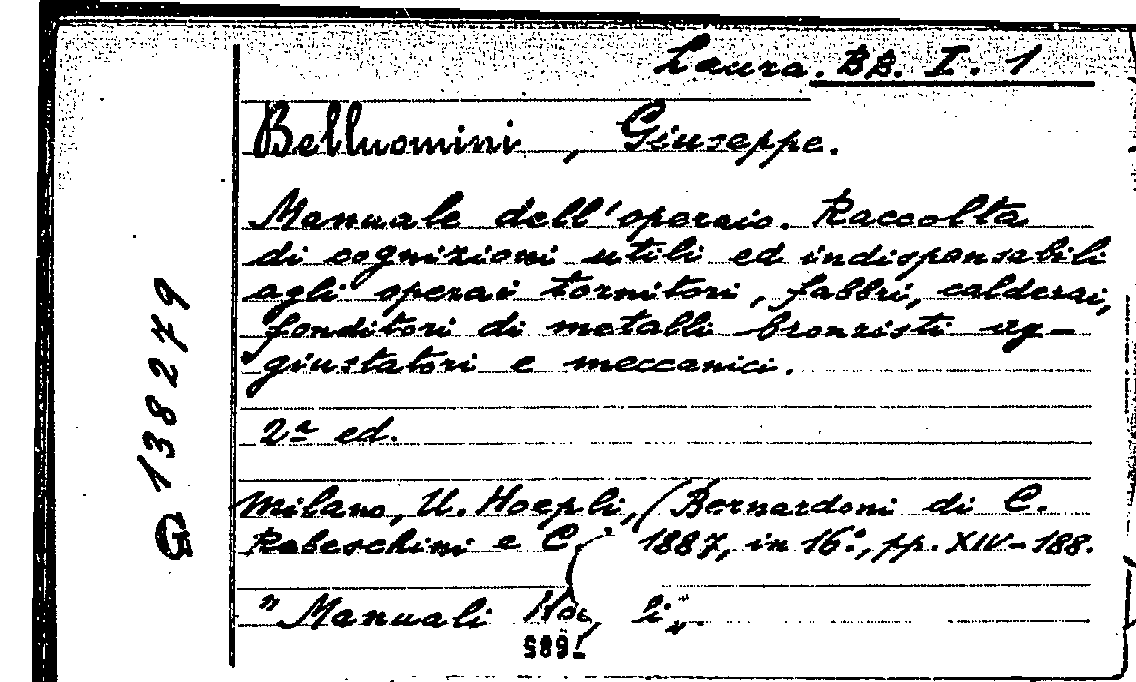 Laura. BB. I. 1
Belluomini, Giuseppe.
Manuale dell'operaio. Raccolta
di cognizioni utili ed indispensabili
agli operai tornitori, fabbri, calderai,
fonditori di metalli bronzisti ag-
giustatori e meccanici.
2ª ed.
Milano, U. Hoepli, (Bernardoni di C.
Rebeschini e C. 1887, in 16°, pp. XIV-188.
"Manuali Hoe li".
G 138279